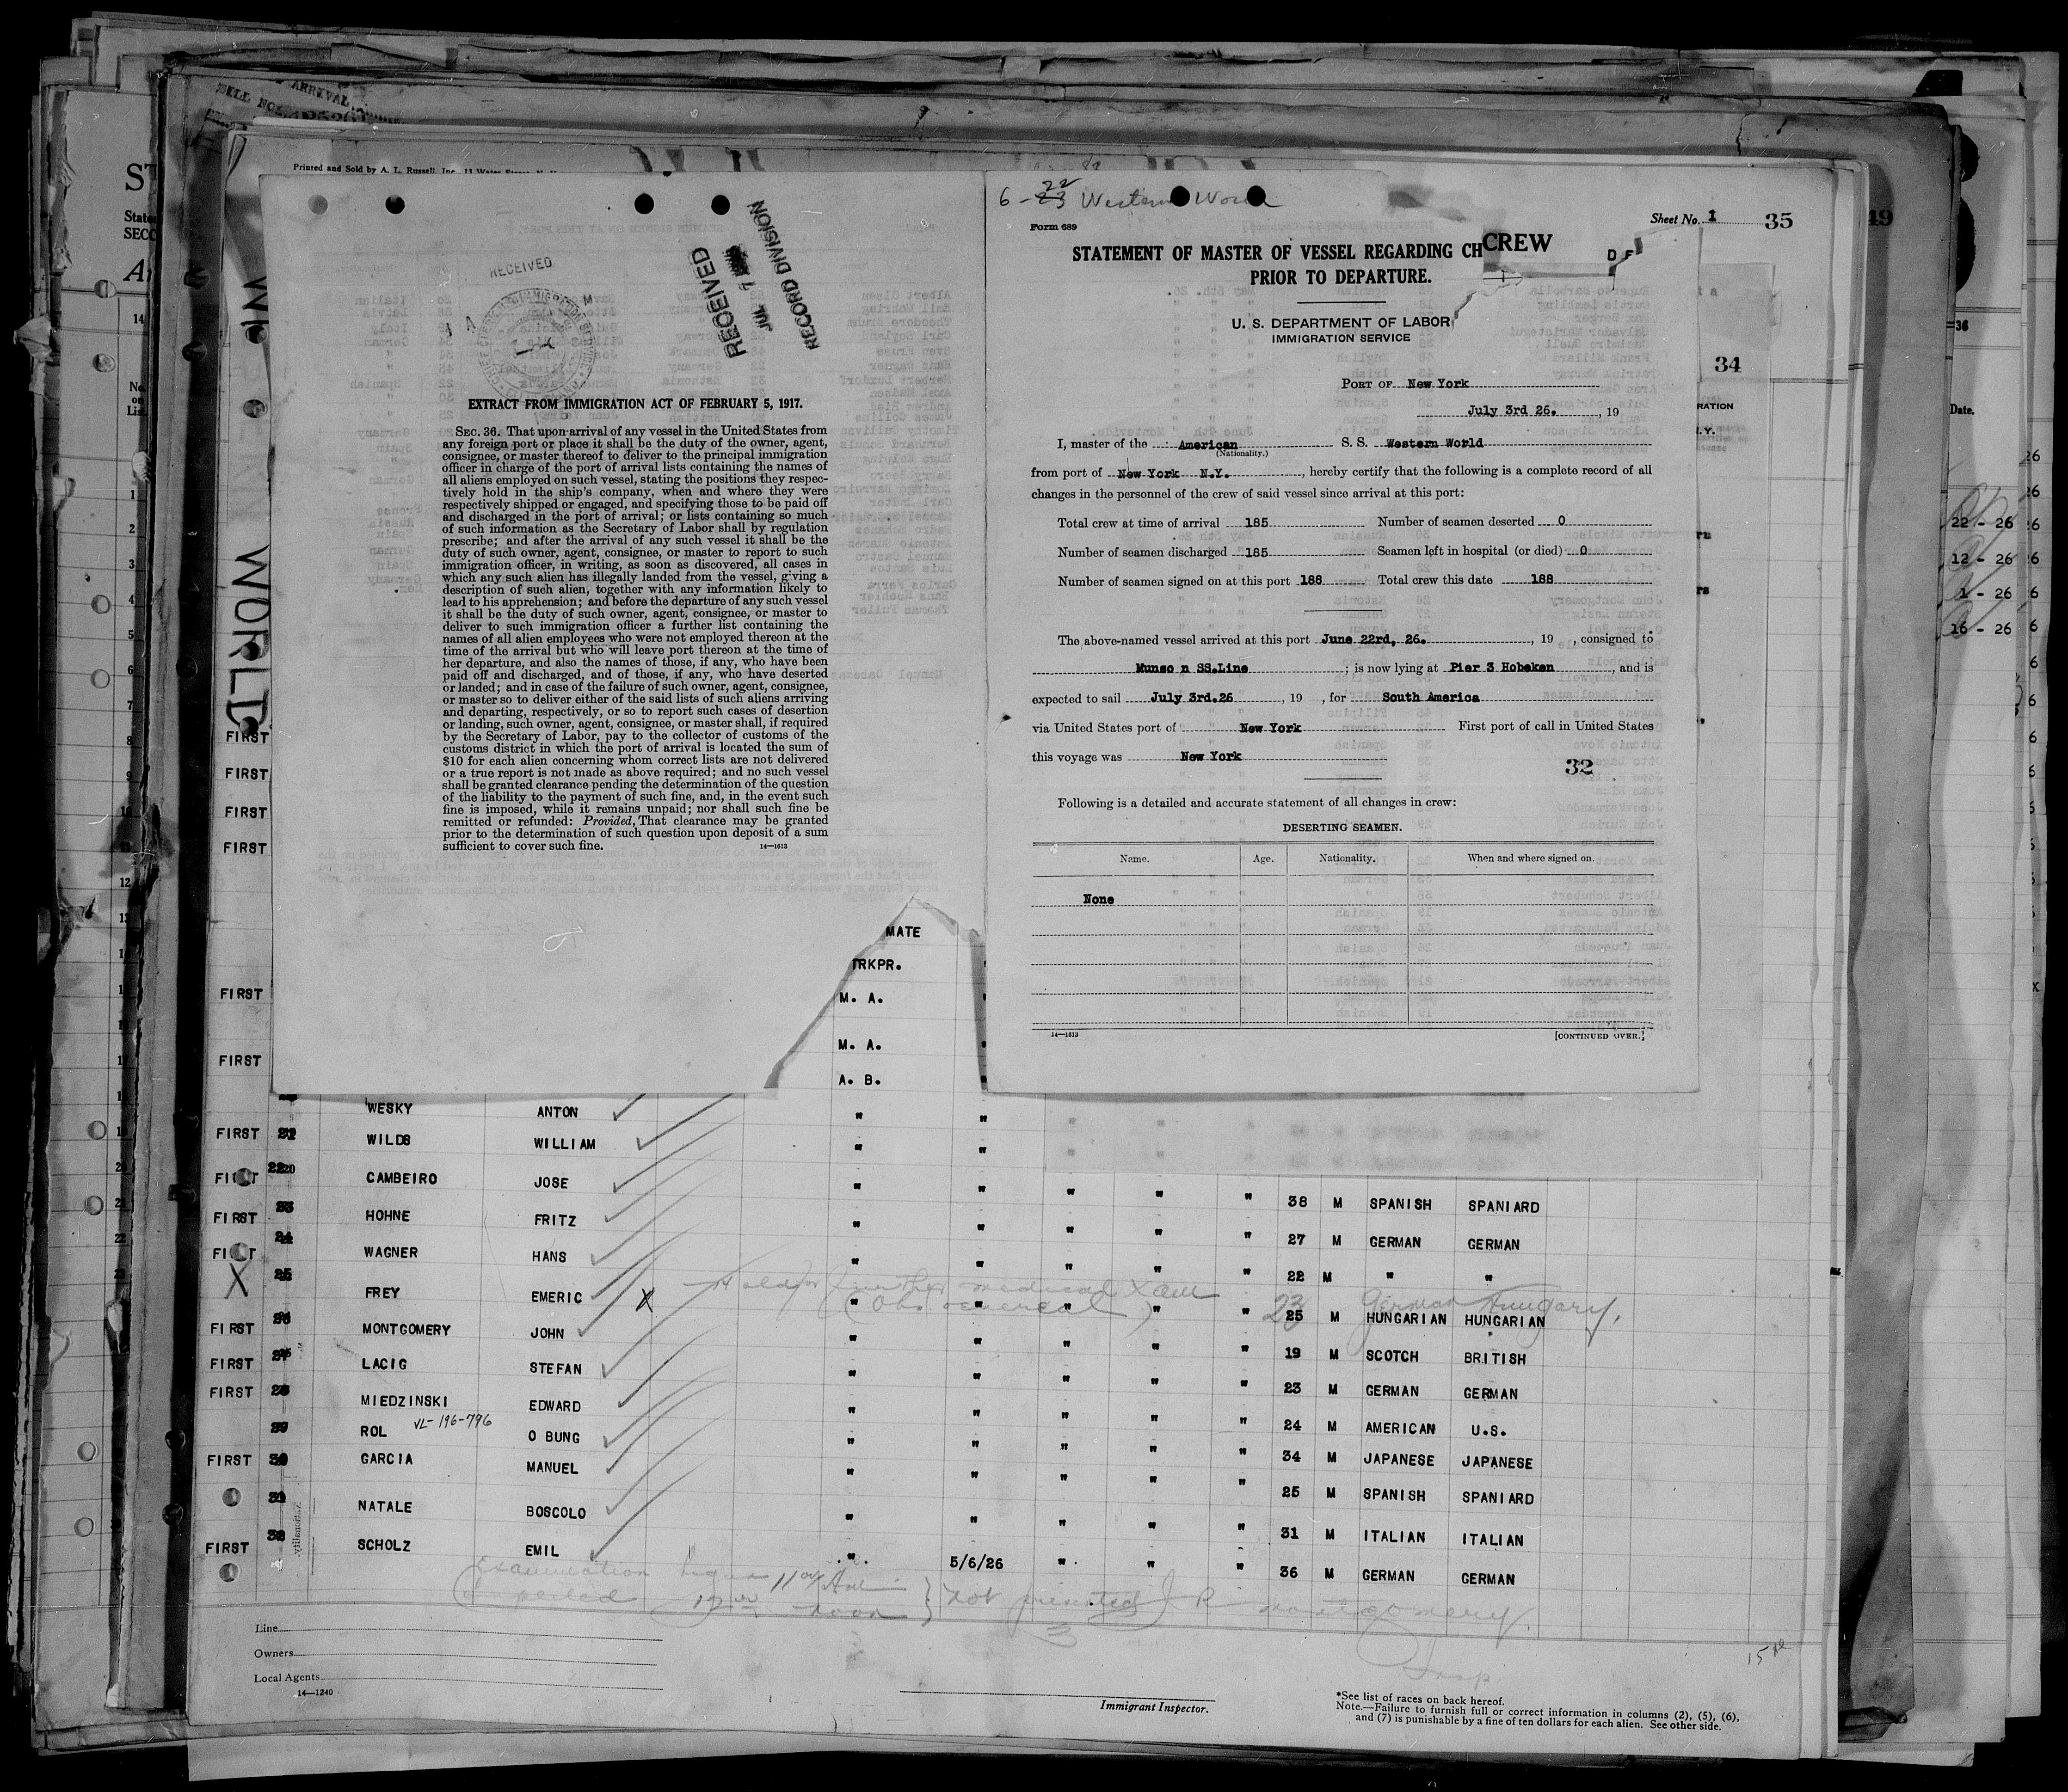 ARRIVAL
BILL NO.
Printed and Sold by A. L. Russell, Inc.
RECEIVED
RECEIVED
JUL 7
RECORD DIVISION
EXTRACT FROM IMMIGRATION ACT OF FEBRUARY 5, 1917.
SEC. 36. That upon arrival of any vessel in the United States from
any foreign port or place it shall be the duty of the owner, agent,
consignee, or master thereof to deliver to the principal immigration
officer in charge of the port of arrival lists containing the names of
all aliens employed on such vessel, stating the positions they respec-
tively hold in the ship's company, when and where they were
respectively shipped or engaged, and specifying those to be paid off
and discharged in the port of arrival; or lists containing so much
of such information as the Secretary of Labor shall by regulation
prescribe; and after the arrival of any such vessel it shall be the
duty of such owner, agent, consignee, or master to report to such
immigration officer, in writing, as soon as discovered, all cases in
which any such alien has illegally landed from the vessel, giving a
description of such alien, together with any information likely to
lead to his apprehension; and before the departure of any such vessel
it shall be the duty of such owner, agent, consignee, or master to
deliver to such immigration officer a further list containing the
names of all alien employees who were not employed thereon at the
time of the arrival but who will leave port thereon at the time of
her departure, and also the names of those, if any, who have been
paid off and discharged, and of those, if any, who have deserted
or landed; and in case of the failure of such owner, agent, consignee,
or master so to deliver either of the said lists of such aliens arriving
and departing, respectively, or so to report such cases of desertion
or landing, such owner, agent, consignee, or master shall, if required
by the Secretary of Labor, pay to the collector of customs of the
customs district in which the port of arrival is located the sum of
$10 for each alien concerning whom correct lists are not delivered
or a true report is not made as above required; and no such vessel
shall be granted clearance pending the determination of the question
of the liability to the payment of such fine, and, in the event such
fine is imposed, while it remains unpaid; nor shall such fine be
remitted or refunded: Provided, That clearance may be granted
prior to the determination of such question upon deposit of a sum
sufficient to cover such fine.
14—1613
6-22 Western World
Form 689
Sheet No. 1 35
STATEMENT OF MASTER OF VESSEL REGARDING CH CREW
PRIOR TO DEPARTURE.
U. S. DEPARTMENT OF LABOR
IMMIGRATION SERVICE
34
PORT OF New York
July 3rd 26. , 19
I, master of the American S. S. Western World
(Nationality.)
from port of New York N.Y. , hereby certify that the following is a complete record of all
changes in the personnel of the crew of said vessel since arrival at this port:
Total crew at time of arrival 185 Number of seamen deserted 0
Number of seamen discharged 185 Seamen left in hospital (or died) 0
Number of seamen signed on at this port 188 Total crew this date 188
The above-named vessel arrived at this port June 22rd, 26. , 19 , consigned to
Munso n SS.Line ; is now lying at Pier 3 Hoboken , and is
expected to sail July 3rd.26 , 19 , for South America
via United States port of New York First port of call in United States
this voyage was New York
32
Following is a detailed and accurate statement of all changes in crew:
DESERTING SEAMEN.
Name. Age. Nationality. When and where signed on.
None
14—1613 [CONTINUED OVER.]
WORLD
FIRST
FIRST
FIRST
FIRST
MATE
TRKPR.
FIRST M. A.
FIRST M. A.
A. B.
WESKY ANTON " "
FIRST 21 WILDS WILLIAM " "
FIRST 22 CAMBEIRO JOSE " " " " " 38 M SPANISH SPANIARD
FIRST 23 HOHNE FRITZ " " " " " 27 M GERMAN GERMAN
FIRST 24 WAGNER HANS " " " " " 22 M " "
Hold for further medical Xam
X 25 FREY EMERIC X " " " " 23 25 M HUNGARIAN HUNGARIAN German Hungary.
FIRST 26 MONTGOMERY JOHN " " " " " 19 M SCOTCH BRITISH
FIRST 27 LACIG STEFAN " " " " " 23 M GERMAN GERMAN
FIRST 28 MIEDZINSKI EDWARD " " " " " 24 M AMERICAN U.S.
29 ROL VL-196-796 O BUNG " " " " " 34 M JAPANESE JAPANESE
FIRST 30 GARCIA MANUEL " " " " " 25 M SPANISH SPANIARD
31 NATALE BOSCOLO " " " " " 31 M ITALIAN ITALIAN
FIRST 32 SCHOLZ EMIL " 5/6/26 " " " 36 M GERMAN GERMAN
Examination began 11 00 AM
12 00 noon } not presented J R Montgomery
Insp
Line
Owners
Local Agents
14—1240
Immigrant Inspector.
*See list of races on back hereof.
Note.—Failure to furnish full or correct information in columns (2), (5), (6),
and (7) is punishable by a fine of ten dollars for each alien. See other side.
49
Date.
22 - 26
12 - 26
1 - 26
16 - 26